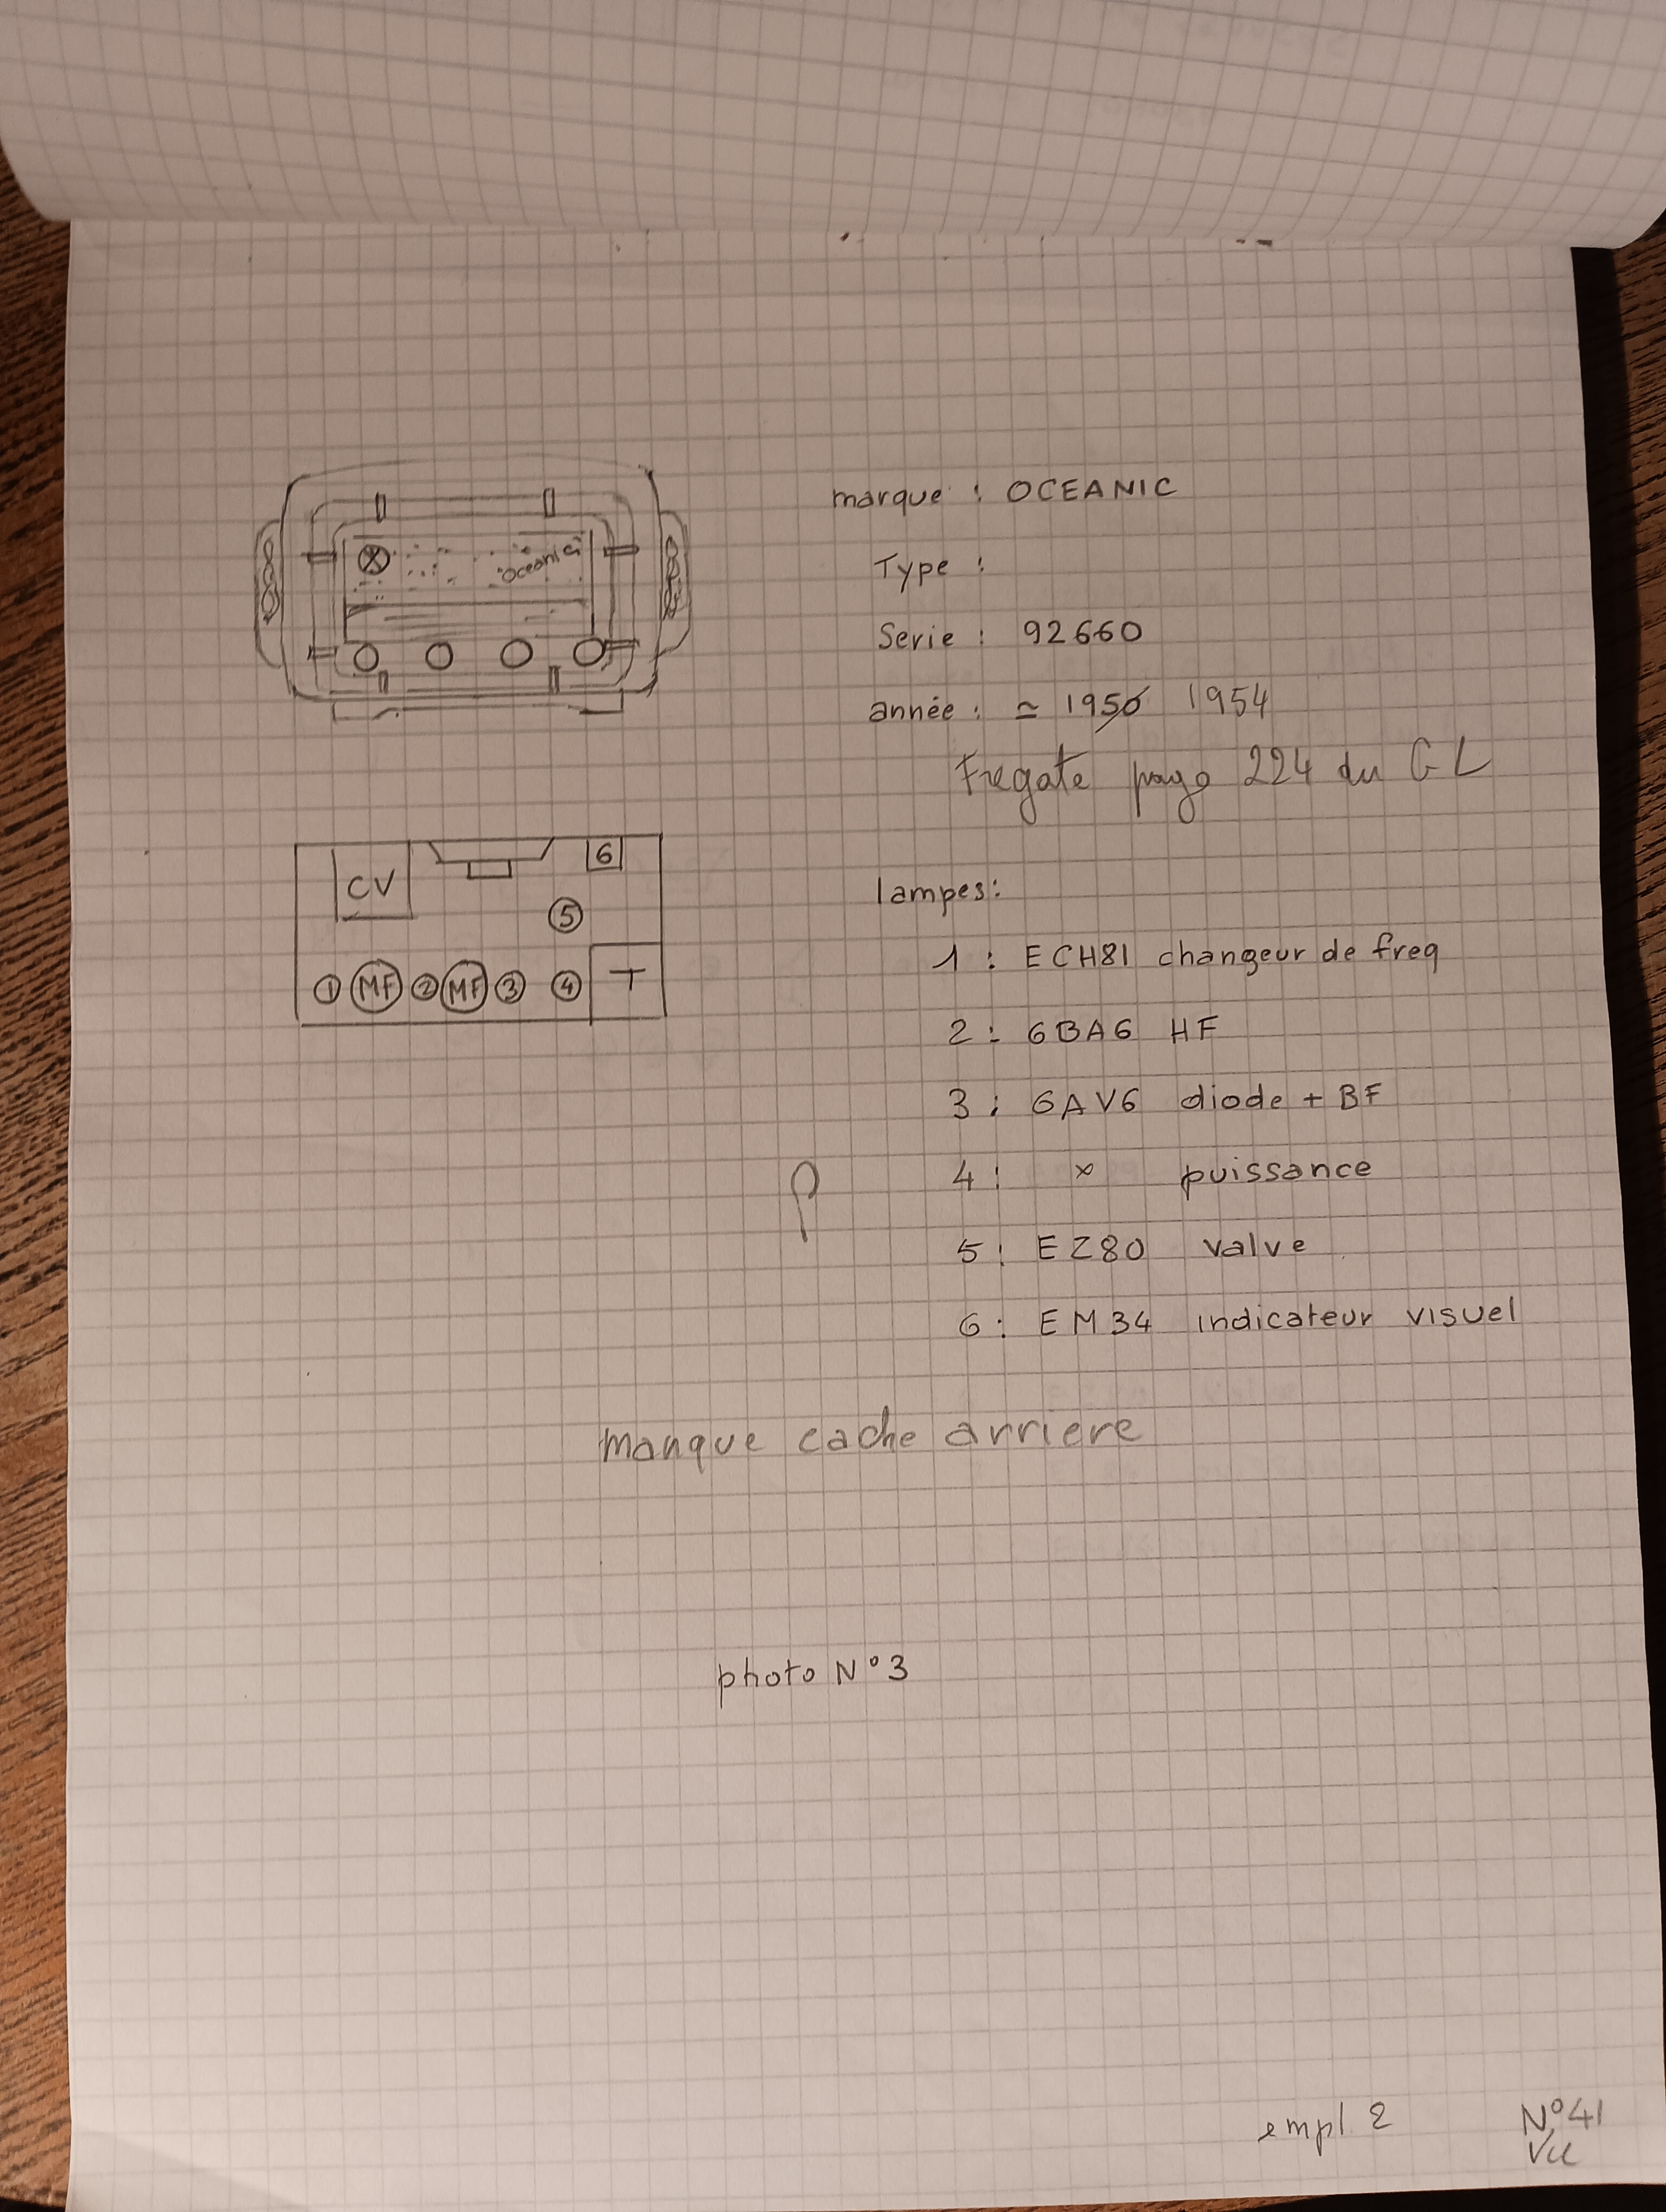 marque : OCEANIC
Oceanic
Type :
Serie : 92660
année : ≃ 1950 1954
Fregate page 224 du GL
CV
6
5
1 MF 2 MF 3 4 T
lampes:
1 : ECH81 changeur de freq
2 : 6BA6 HF
3 : 6AV6 diode + BF
4 : x puissance
5 : EZ80 valve
6 : EM34 indicateur visuel
manque cache arriere
photo N°3
empl 2
N°41
Vu